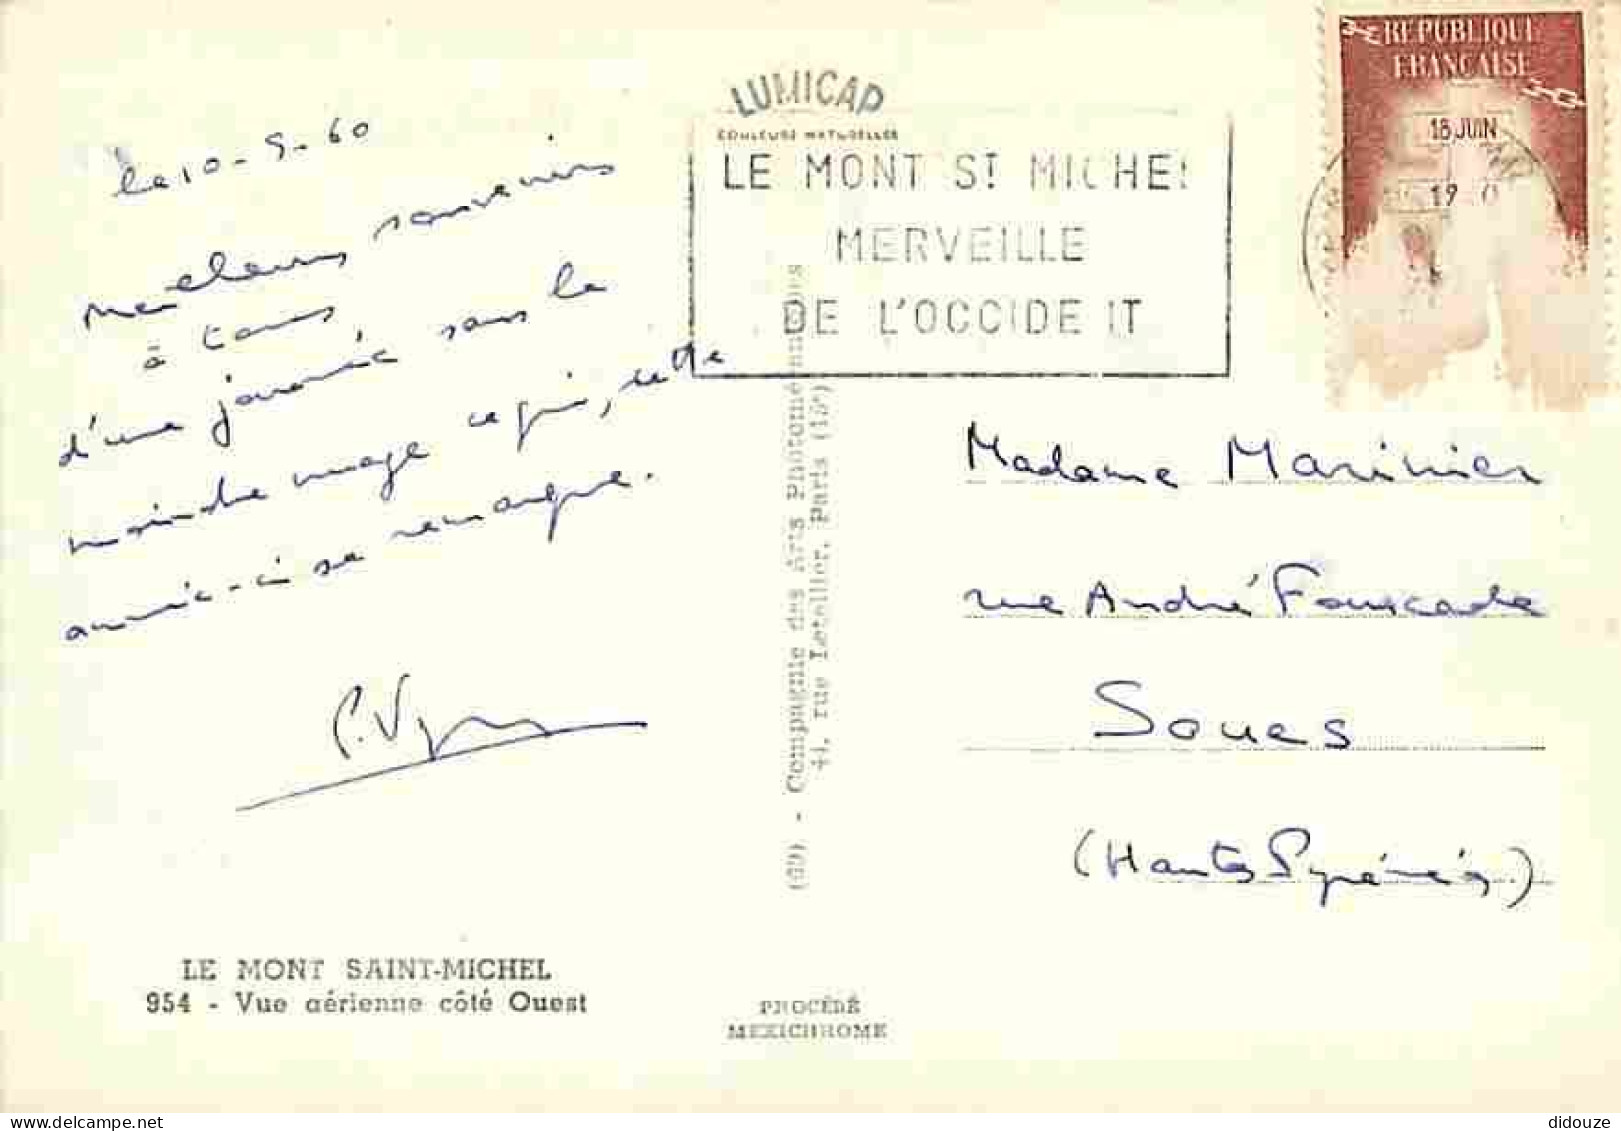 le 10-9-60
Meilleurs souvenirs
à tous,
d'une journée sans le
moindre nuage ce qui, cette
année-ci se remarque.
LUMICAP
COULEURS NATURELLES
LE MONT St MICHEL
MERVEILLE
DE L'OCCIDE IT
REPUBLIQUE
FRANÇAISE
18 JUIN
19 0
(69). - Compagnie des Arts Photomécaniques
44, rue Letellier, Paris (15e)
Madame Marinier
rue André Fourcade
Soues
(Hautes Pyrénées)
LE MONT SAINT-MICHEL
954 - Vue aérienne côté Ouest
PROCÉDÉ
MEXICHROME
didouze